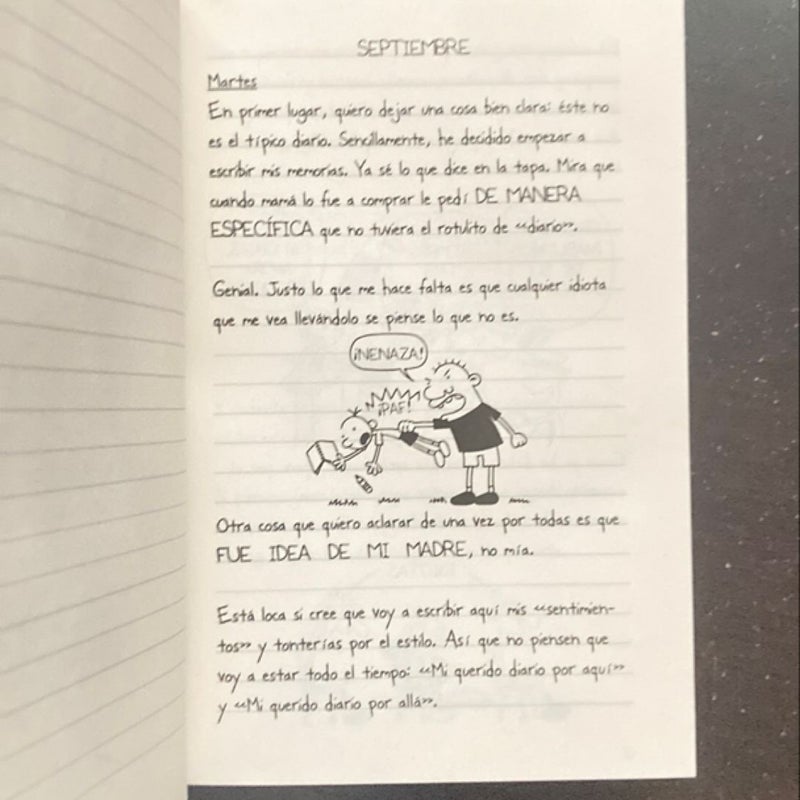 SEPTIEMBRE
Martes
En primer lugar, quiero dejar una cosa bien clara: éste no
es el típico diario. Sencillamente, he decidido empezar a
escribir mis memorias. Ya sé lo que dice en la tapa. Mira que
cuando mamá lo fue a comprar le pedí DE MANERA
ESPECÍFICA que no tuviera el rotulito de «diario».
Genial. Justo lo que me hace falta es que cualquier idiota
que me vea llevándolo se piense lo que no es.
¡NENAZA!
¡PAF!
Otra cosa que quiero aclarar de una vez por todas es que
FUE IDEA DE MI MADRE, no mía.
Está loca si cree que voy a escribir aquí mis «sentimien-
tos» y tonterías por el estilo. Así que no piensen que
voy a estar todo el tiempo: «Mi querido diario por aquí»
y «Mi querido diario por allá».